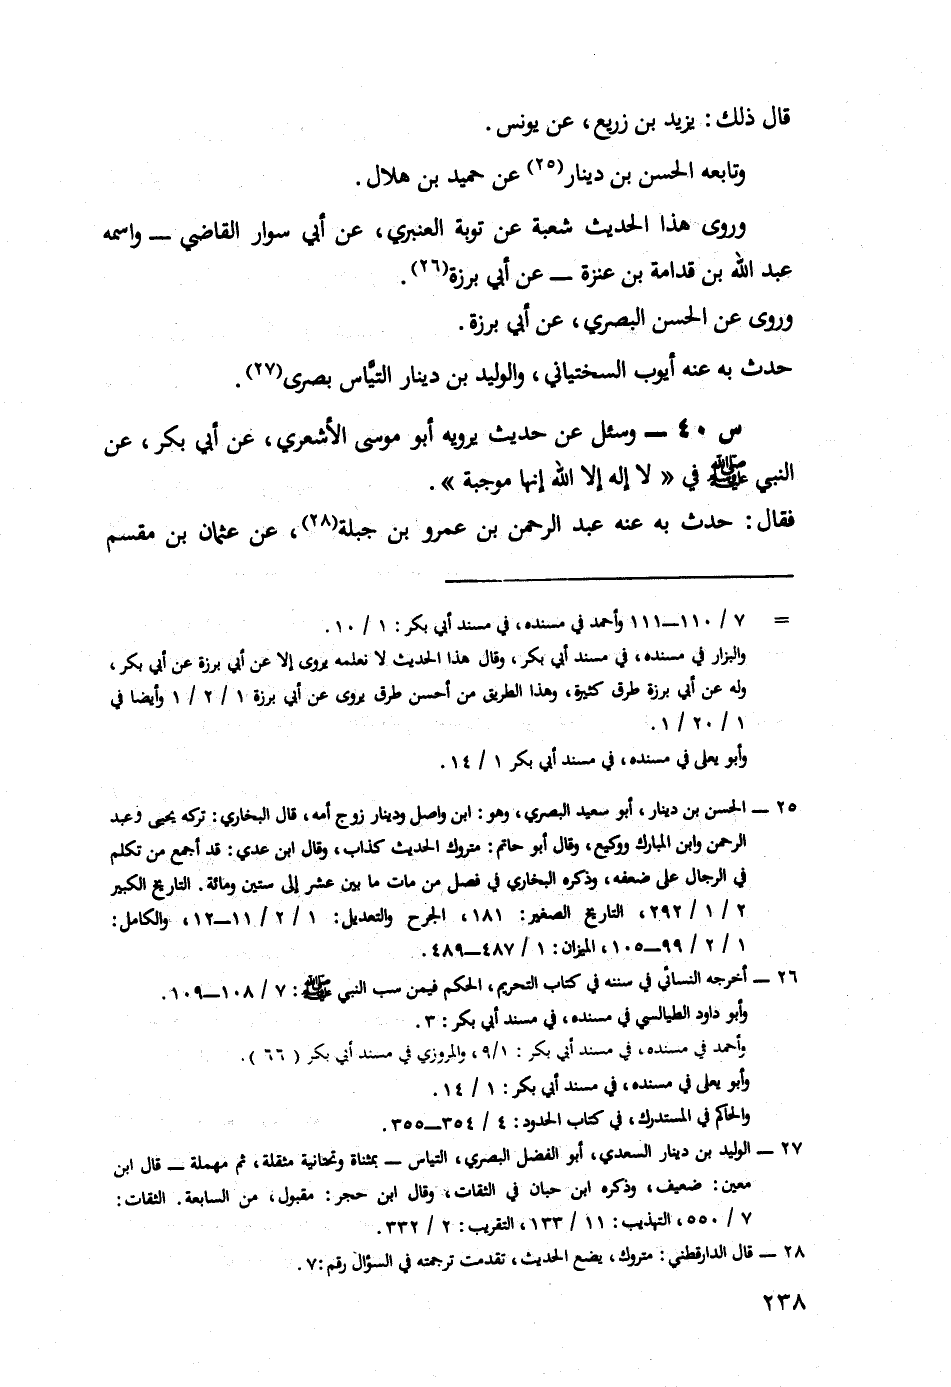 قال ذلك : يزيد بن زريع ، عن يونس .
وتابعه الحسن بن دينار(٢٥) عن حميد بن هلال .
وروى هذا الحديث شعبة عن توبة العنبري ، عن أبي سوار القاضي ــ واسمه
عبد الله بن قدامة بن عنزة ــ عن أبي برزة(٢٦) .
وروى عن الحسن البصري ، عن أبي برزة .
حدث به عنه أيوب السختياني ، والوليد بن دينار التيَّاس بصرى(٢٧) .
س ٤٠ ــ وسئل عن حديث يرويه أبو موسى الأشعري ، عن أبي بكر ، عن
النبي ﷺ في « لا إله إلا الله إنها موجبة » .
فقال : حدث به عنه عبد الرحمن بن عمرو بن جبلة(٢٨) ، عن عثمان بن مقسم
= ٧ / ١١٠ــ١١١ وأحمد في مسنده ، في مسند أبي بكر : ١ / ١٠ .
والبزار في مسنده ، في مسند أبي بكر ، وقال هذا الحديث لا نعلمه يروى إلا عن أبي برزة عن أبي بكر ،
وله عن أبي برزة طرق كثيرة ، وهذا الطريق من أحسن طرق يروى عن أبي برزة ١ / ٢ / ١ وأيضا في
١ / ٢٠ / ١ .
وأبو يعلى في مسنده ، في مسند أبي بكر ١ / ١٤ .
٢٥ ــ الحسن بن دينار ، أبو سعيد البصري ، وهو : ابن واصل ودينار زوج أمه ، قال البخاري : تركه يحيى وعبد
الرحمن وابن المبارك ووكيع ، وقال أبو حاتم : متروك الحديث كذاب ، وقال ابن عدي : قد أجمع من تكلم
في الرجال على ضعفه ، وذكره البخاري في فصل من مات ما بين عشر إلى ستين ومائة . التاريخ الكبير
٢ / ١ / ٢٩٢ ، التاريخ الصغير : ١٨١ ، الجرح والتعديل : ١ / ٢ / ١١ــ١٢ ، والكامل :
١ / ٢ / ٩٩ــ١٠٥ ، الميزان : ١ / ٤٨٧ــ٤٨٩ .
٢٦ ــ أخرجه النسائي في سننه في كتاب التحريم ، الحكم فيمن سب النبي ﷺ : ٧ / ١٠٨ــ١٠٩ .
وأبو داود الطيالسي في مسنده ، في مسند أبي بكر : ٣ .
وأحمد في مسنده ، في مسند أبي بكر : ٩/١ ، والمروزي في مسند أبي بكر ( ٦٦ ) .
وأبو يعلى في مسنده ، في مسند أبي بكر : ١ / ١٤ .
والحاكم في المستدرك ، في كتاب الحدود : ٤ / ٣٥٤ــ٣٥٥ .
٢٧ ــ الوليد بن دينار السعدي ، أبو الفضل البصري ، التياس ــ بمثناة وتحتانية مثقلة ، ثم مهملة ــ قال ابن
معين : ضعيف ، وذكره ابن حبان في الثقات ، وقال ابن حجر : مقبول ، من السابعة . الثقات :
٧ / ٥٥٠ ، التهذيب : ١١ / ١٣٣ ، التقريب : ٢ / ٣٣٢ .
٢٨ ــ قال الدارقطني : متروك ، يضع الحديث ، تقدمت ترجمته في السؤال رقم : ٧ .
٢٣٨